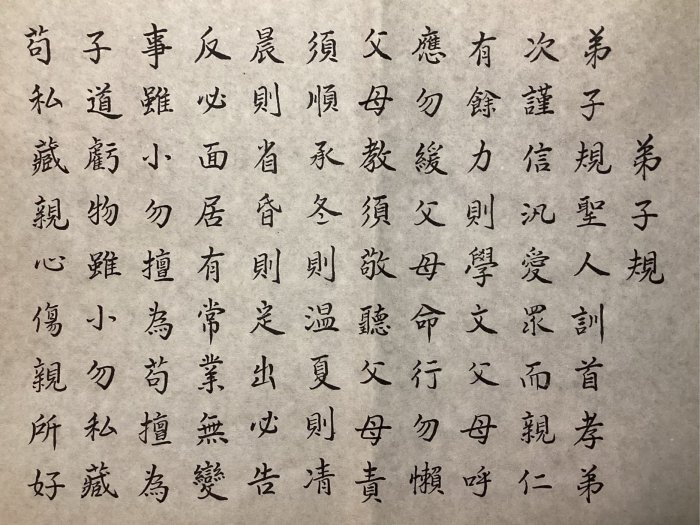 弟子規
弟子規聖人訓首孝弟
次謹信汎愛眾而親仁
有餘力則學文父母呼
應勿緩父母命行勿懶
父母教須敬聽父母責
須順承冬則温夏則凊
晨則省昏則定出必告
反必面居有常業無變
事雖小勿擅為苟擅為
子道虧物雖小勿私藏
苟私藏親心傷親所好